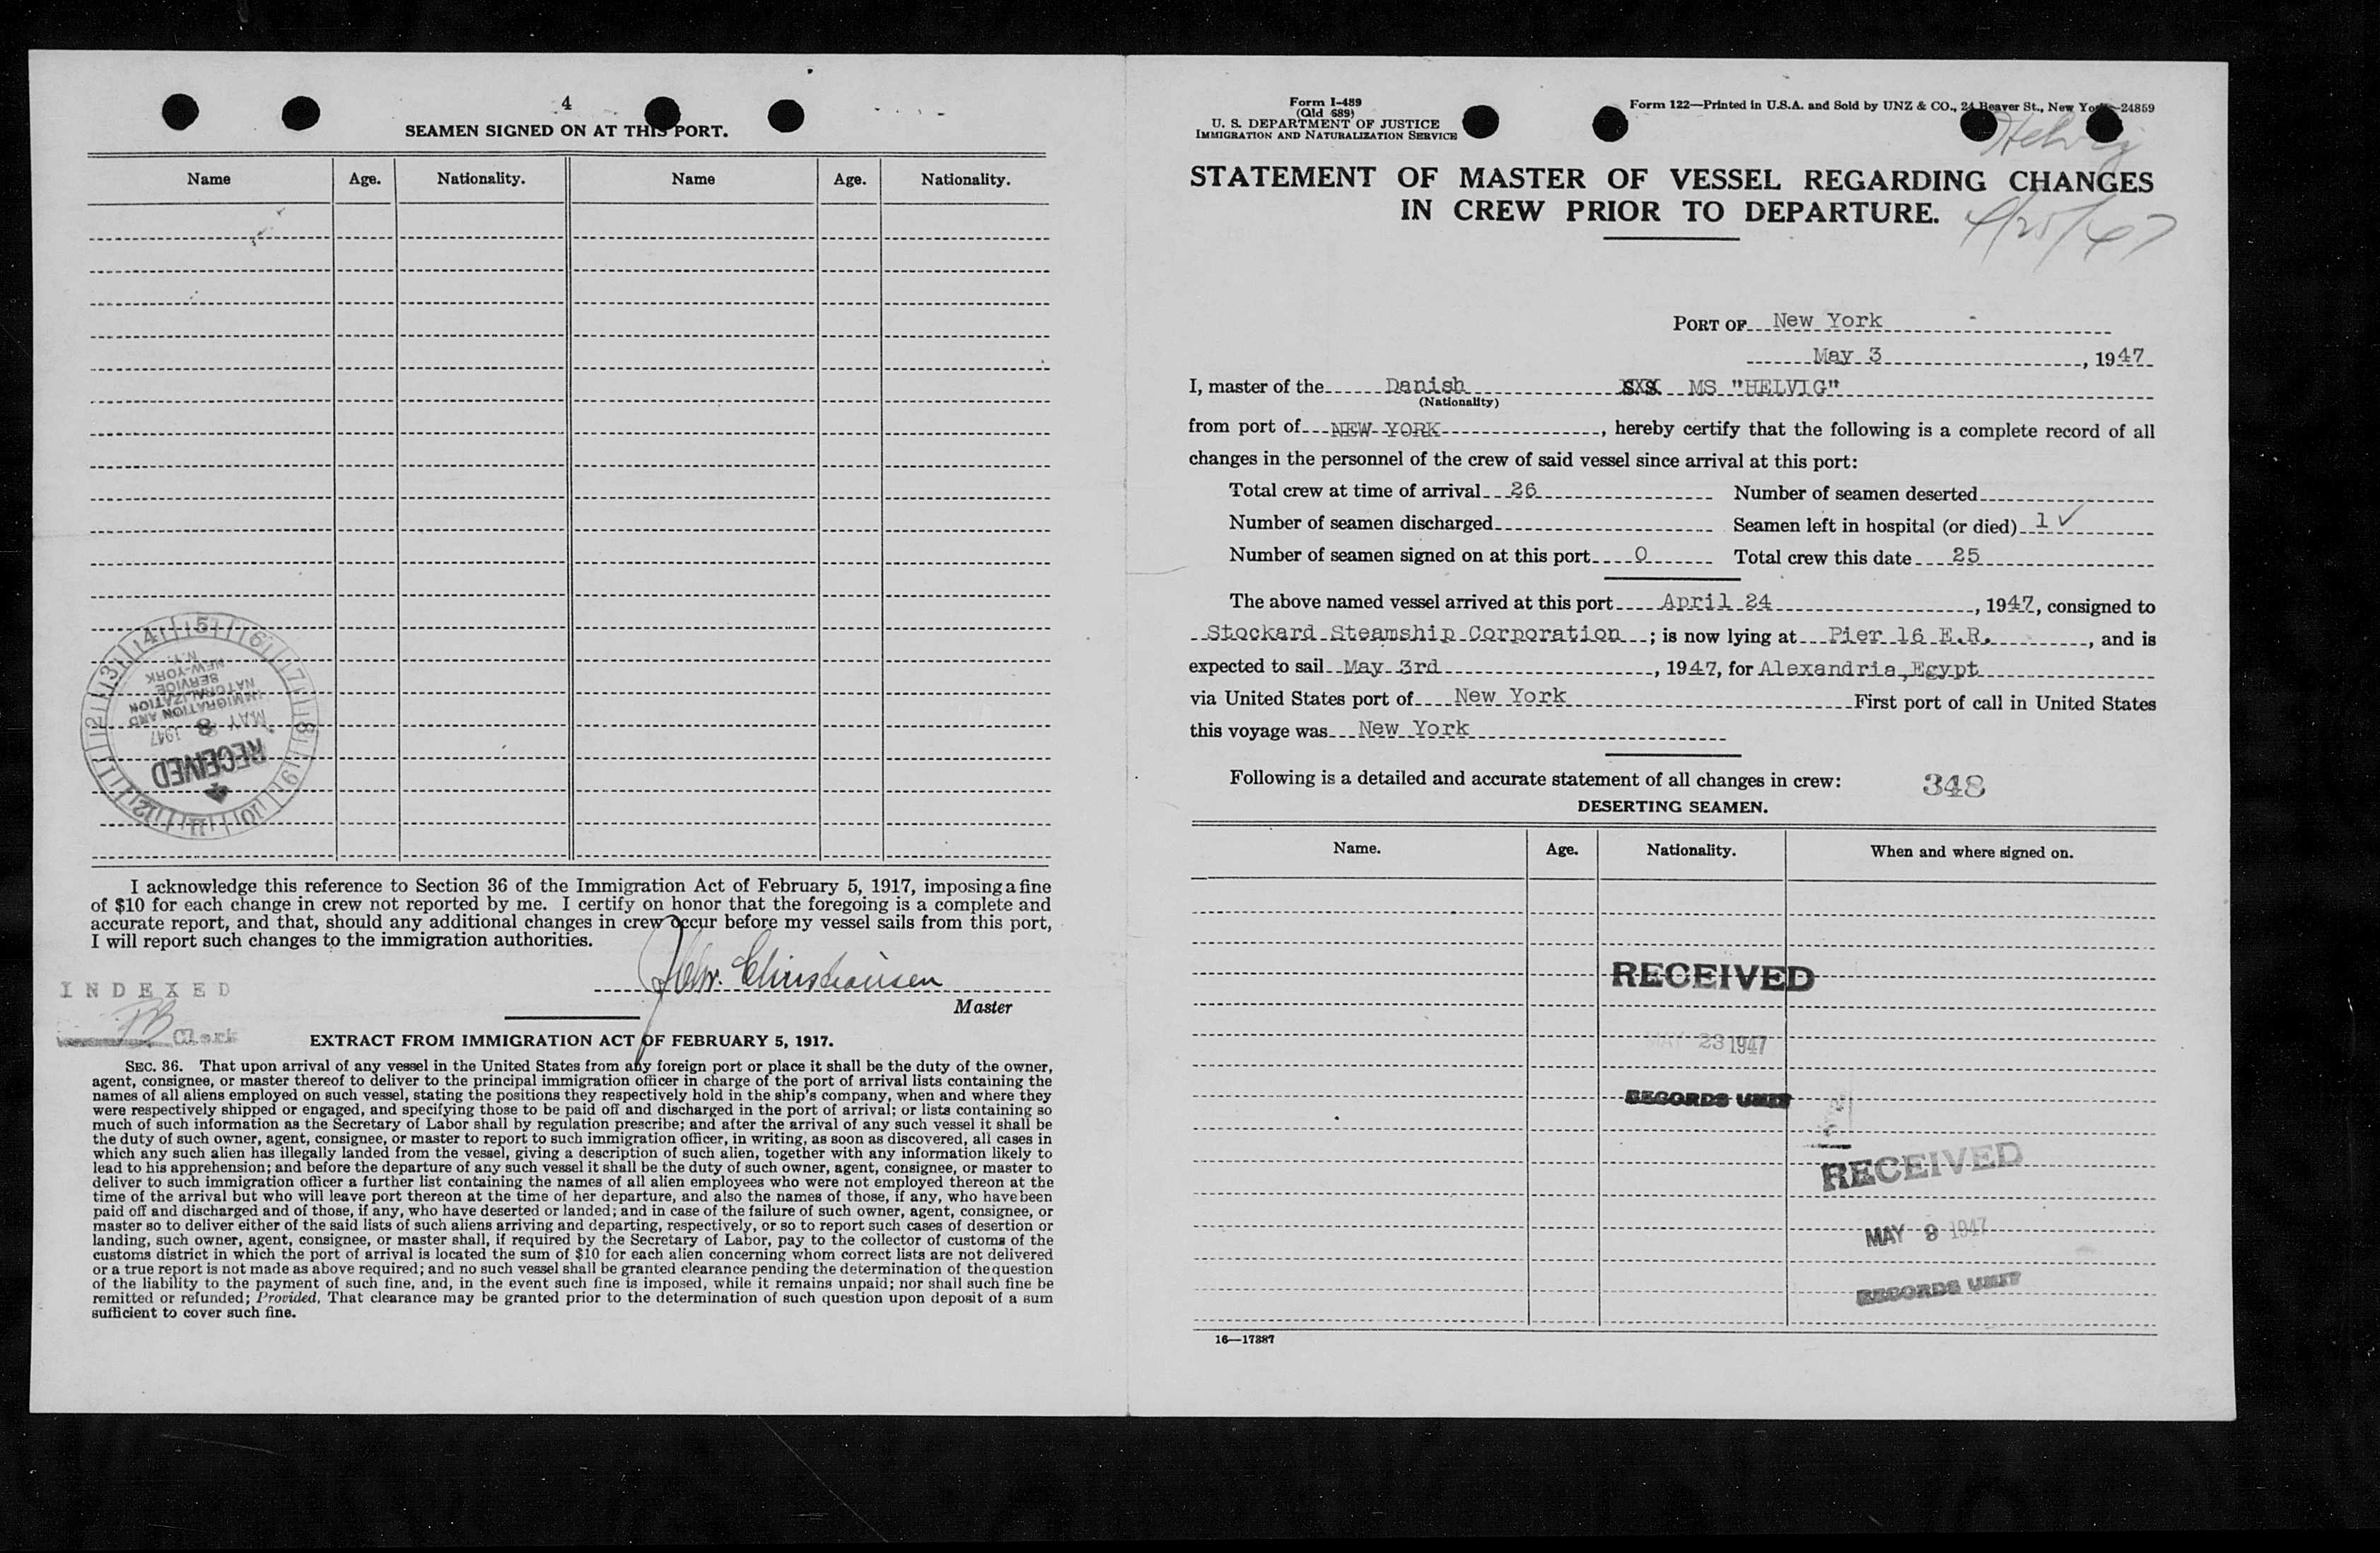 4
SEAMEN SIGNED ON AT THIS PORT.
Name Age. Nationality. Name Age. Nationality.
4 5 6 7 8 9 10 11 12 1 2 3
RECEIVED
MAY 8 1947
IMMIGRATION AND
NATURALIZATION
SERVICE
NEW-YORK
N.Y.
I acknowledge this reference to Section 36 of the Immigration Act of February 5, 1917, imposing a fine
of $10 for each change in crew not reported by me. I certify on honor that the foregoing is a complete and
accurate report, and that, should any additional changes in crew occur before my vessel sails from this port,
I will report such changes to the immigration authorities.
Christiansen
Master
INDEXED
Clerk
EXTRACT FROM IMMIGRATION ACT OF FEBRUARY 5, 1917.
SEC. 36. That upon arrival of any vessel in the United States from any foreign port or place it shall be the duty of the owner,
agent, consignee, or master thereof to deliver to the principal immigration officer in charge of the port of arrival lists containing the
names of all aliens employed on such vessel, stating the positions they respectively hold in the ship's company, when and where they
were respectively shipped or engaged, and specifying those to be paid off and discharged in the port of arrival; or lists containing so
much of such information as the Secretary of Labor shall by regulation prescribe; and after the arrival of any such vessel it shall be
the duty of such owner, agent, consignee, or master to report to such immigration officer, in writing, as soon as discovered, all cases in
which any such alien has illegally landed from the vessel, giving a description of such alien, together with any information likely to
lead to his apprehension; and before the departure of any such vessel it shall be the duty of such owner, agent, consignee, or master to
deliver to such immigration officer a further list containing the names of all alien employees who were not employed thereon at the
time of the arrival but who will leave port thereon at the time of her departure, and also the names of those, if any, who have been
paid off and discharged and of those, if any, who have deserted or landed; and in case of the failure of such owner, agent, consignee, or
master so to deliver either of the said lists of such aliens arriving and departing, respectively, or so to report such cases of desertion or
landing, such owner, agent, consignee, or master shall, if required by the Secretary of Labor, pay to the collector of customs of the
customs district in which the port of arrival is located the sum of $10 for each alien concerning whom correct lists are not delivered
or a true report is not made as above required; and no such vessel shall be granted clearance pending the determination of the question
of the liability to the payment of such fine, and, in the event such fine is imposed, while it remains unpaid; nor shall such fine be
remitted or refunded; Provided, That clearance may be granted prior to the determination of such question upon deposit of a sum
sufficient to cover such fine.
Form I-489
(Old 689)
U. S. DEPARTMENT OF JUSTICE
IMMIGRATION AND NATURALIZATION SERVICE
Form 122—Printed in U.S.A. and Sold by UNZ & CO., 24 Beaver St., New York—24859
Helvig
STATEMENT OF MASTER OF VESSEL REGARDING CHANGES
IN CREW PRIOR TO DEPARTURE.
4/25/47
PORT OF New York
May 3, 1947
I, master of the Danish MS "HELVIG"
(Nationality)
from port of NEW YORK, hereby certify that the following is a complete record of all
changes in the personnel of the crew of said vessel since arrival at this port:
Total crew at time of arrival 26 Number of seamen deserted
Number of seamen discharged Seamen left in hospital (or died) 1 ✓
Number of seamen signed on at this port 0 Total crew this date 25
The above named vessel arrived at this port April 24, 1947, consigned to
Stockard Steamship Corporation; is now lying at Pier 16 E.R., and is
expected to sail May 3rd, 1947, for Alexandria, Egypt
via United States port of New York First port of call in United States
this voyage was New York
Following is a detailed and accurate statement of all changes in crew: 348
DESERTING SEAMEN.
Name. Age. Nationality. When and where signed on.
RECEIVED
MAY 23 1947
RECORDS UNIT
RECEIVED
MAY 9 1947
RECORDS UNIT
16—17387